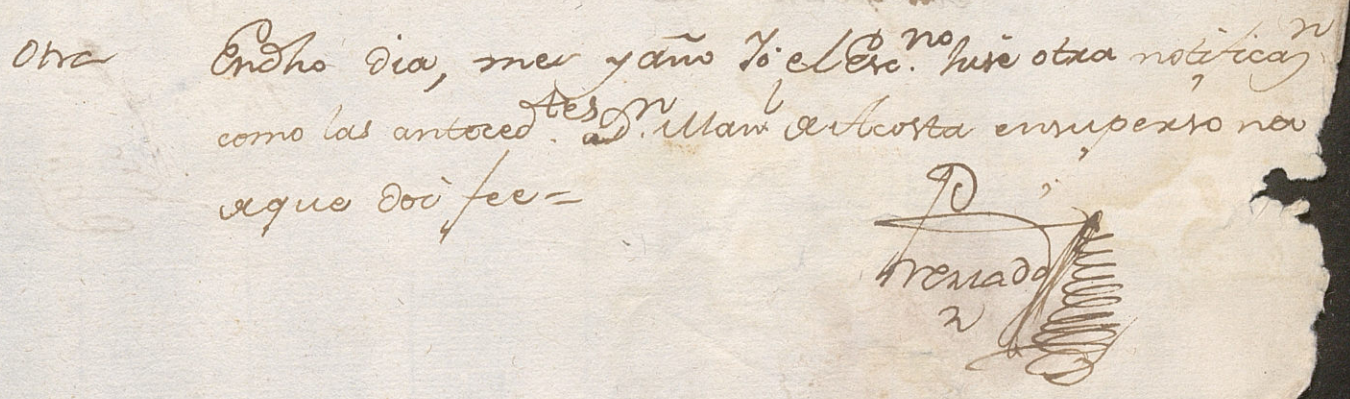 Otra Endho dia, mes y año Yo el Esc.no hise otra notifican
como las anteced.tes a Dn. Manl de Acosta ensupersona
deque doi fee=